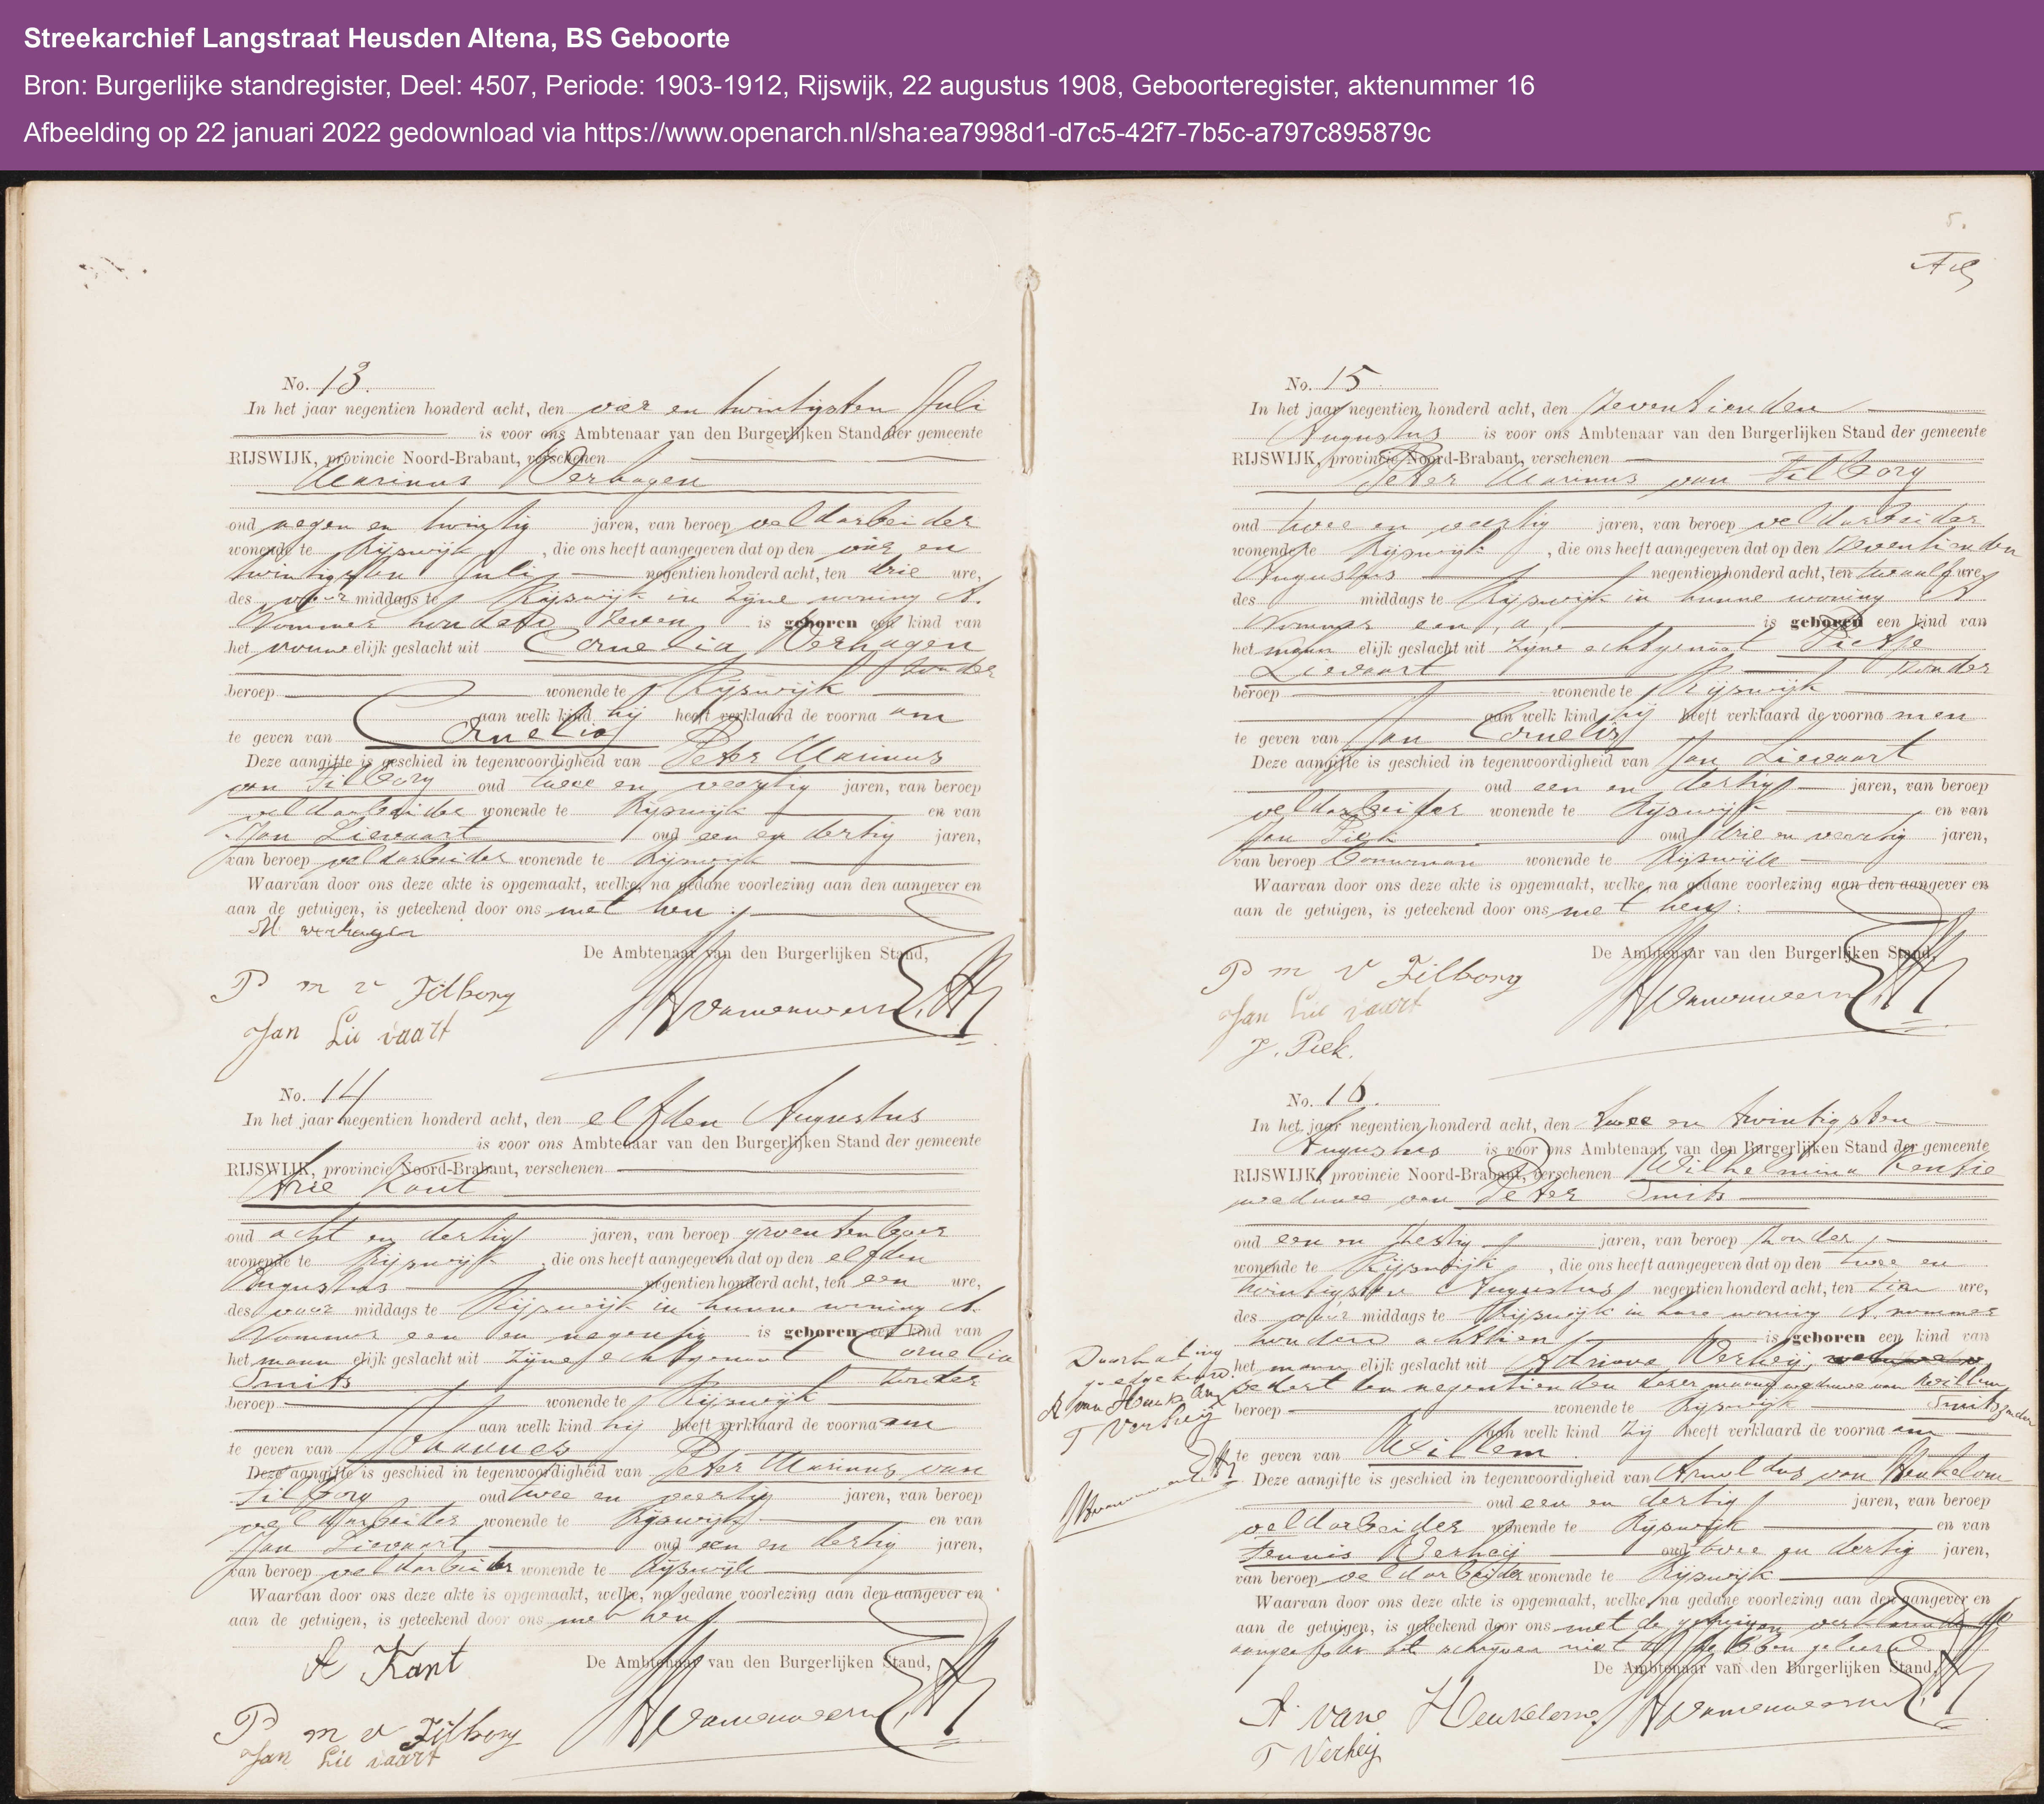 Streekarchief Langstraat Heusden Altena, BS Geboorte
Bron: Burgerlijke standregister, Deel: 4507, Periode: 1903-1912, Rijswijk, 22 augustus 1908, Geboorteregister, aktenummer 16
Afbeelding op 22 januari 2022 gedownload via https://www.openarch.nl/sha:ea7998d1-d7c5-42f7-7b5c-a797c895879c
No. 13.
In het jaar negentien honderd acht, den vier en twintigsten Juli
is voor ons Ambtenaar van den Burgerlijken Stand der gemeente
RIJSWIJK, provincie Noord-Brabant, verschenen
Marinus Verhagen
oud negen en twintig jaren, van beroep veldarbeider
wonende te Rijswijk, die ons heeft aangegeven dat op den vier en
twintigsten Juli negentien honderd acht, ten drie ure,
des voor middags te Rijswijk in zijne woning A.
Nommer honderd zeven is geboren een kind van
het vrouwelijk geslacht uit Cornelia Verhagen
zonder
beroep wonende te Rijswijk
aan welk kind hij heeft verklaard de voorna am
te geven van Cornelia
Deze aangifte is geschied in tegenwoordigheid van Peter Marinus
van Tilborg oud twee en veertig jaren, van beroep
veldarbeider wonende te Rijswijk en van
Jan Lievaart oud een en dertig jaren,
van beroep veldarbeider wonende te Rijswijk
Waarvan door ons deze akte is opgemaakt, welke, na gedane voorlezing aan den aangever en
aan de getuigen, is geteekend door ons met hen.
M verhagen
De Ambtenaar van den Burgerlijken Stand,
P m v Tilborg
Jan Lie vaart
No. 14
In het jaar negentien honderd acht, den elfden Augustus
is voor ons Ambtenaar van den Burgerlijken Stand der gemeente
RIJSWIJK, provincie Noord-Brabant, verschenen
Arie Kant
oud acht en dertig jaren, van beroep groentenboer
wonende te Rijswijk, die ons heeft aangegeven dat op den elfden
Augustus negentien honderd acht, ten een ure,
des voor middags te Rijswijk in hunne woning A.
Nommer een en negentig is geboren een kind van
het mannelijk geslacht uit zijne echtgenoot Cornelia
Smits zonder
beroep wonende te Rijswijk
aan welk kind hij heeft verklaard de voorna am
te geven van Johannes
Deze aangifte is geschied in tegenwoordigheid van Peter Marinus van
Tilborg oud twee en veertig jaren, van beroep
veldarbeider wonende te Rijswijk en van
Jan Lievaart oud een en dertig jaren,
van beroep veldarbeider wonende te Rijswijk
Waarvan door ons deze akte is opgemaakt, welke, na gedane voorlezing aan den aangever en
aan de getuigen, is geteekend door ons met hen
A Kant
De Ambtenaar van den Burgerlijken Stand,
P m v Tilborg
Jan Lie vaart
5.
No. 15
In het jaar negentien honderd acht, den zeventienden
Augustus is voor ons Ambtenaar van den Burgerlijken Stand der gemeente
RIJSWIJK, provincie Noord-Brabant, verschenen
Peter Marinus van Tilborg
oud twee en veertig jaren, van beroep veldarbeider
wonende te Rijswijk, die ons heeft aangegeven dat op den zeventienden
Augustus negentien honderd acht, ten twaalf ure,
des middags te Rijswijk in hunne woning A
Nommer een, a, is geboren een kind van
het mannelijk geslacht uit zijne echtgenoot Pietje
Lievaart zonder
beroep wonende te Rijswijk
aan welk kind hij heeft verklaard de voorna men
te geven van Jan Cornelis
Deze aangifte is geschied in tegenwoordigheid van Jan Lievaart
oud een en dertig jaren, van beroep
veldarbeider wonende te Rijswijk en van
Jan Piek oud drie en veertig jaren,
van beroep bouwman wonende te Rijswijk
Waarvan door ons deze akte is opgemaakt, welke, na gedane voorlezing aan den aangever en
aan de getuigen, is geteekend door ons met hen.
De Ambtenaar van den Burgerlijken Stand,
P m v Tilborg
Jan Lie vaart
J. Piek.
No. 16.
In het jaar negentien honderd acht, den twee en twintigsten
Augustus is voor ons Ambtenaar van den Burgerlijken Stand der gemeente
RIJSWIJK, provincie Noord-Brabant, verschenen Wilhelmina
weduwe van Peter Smits
oud een en zestig jaren, van beroep zonder,
wonende te Rijswijk, die ons heeft aangegeven dat op den twee en
twintigsten Augustus negentien honderd acht, ten tien ure,
des voor middags te Rijswijk in hare woning A. nommer
honderd achttien is geboren een kind van
het mannelijk geslacht uit Adriana Verheij,
sedert den negentienden dezer maand weduwe van Willem
Smits zonder
beroep wonende te Rijswijk
aan welk kind zij heeft verklaard de voorna am
te geven van Willem
Deze aangifte is geschied in tegenwoordigheid van Arnoldus van Heukelom
oud een en dertig jaren, van beroep
veldarbeider wonende te Rijswijk en van
Teunis Verheij oud twee en dertig jaren,
van beroep veldarbeider wonende te Rijswijk
Waarvan door ons deze akte is opgemaakt, welke, na gedane voorlezing aan den aangever en
aan de getuigen, is geteekend door ons met de getuigen verklarende de
aangeefster het schrijven niet te hebben geleerd
De Ambtenaar van den Burgerlijken Stand,
A van Heukelom
T Verheij
Doorhaling
goedgekeurd.
T Verheij